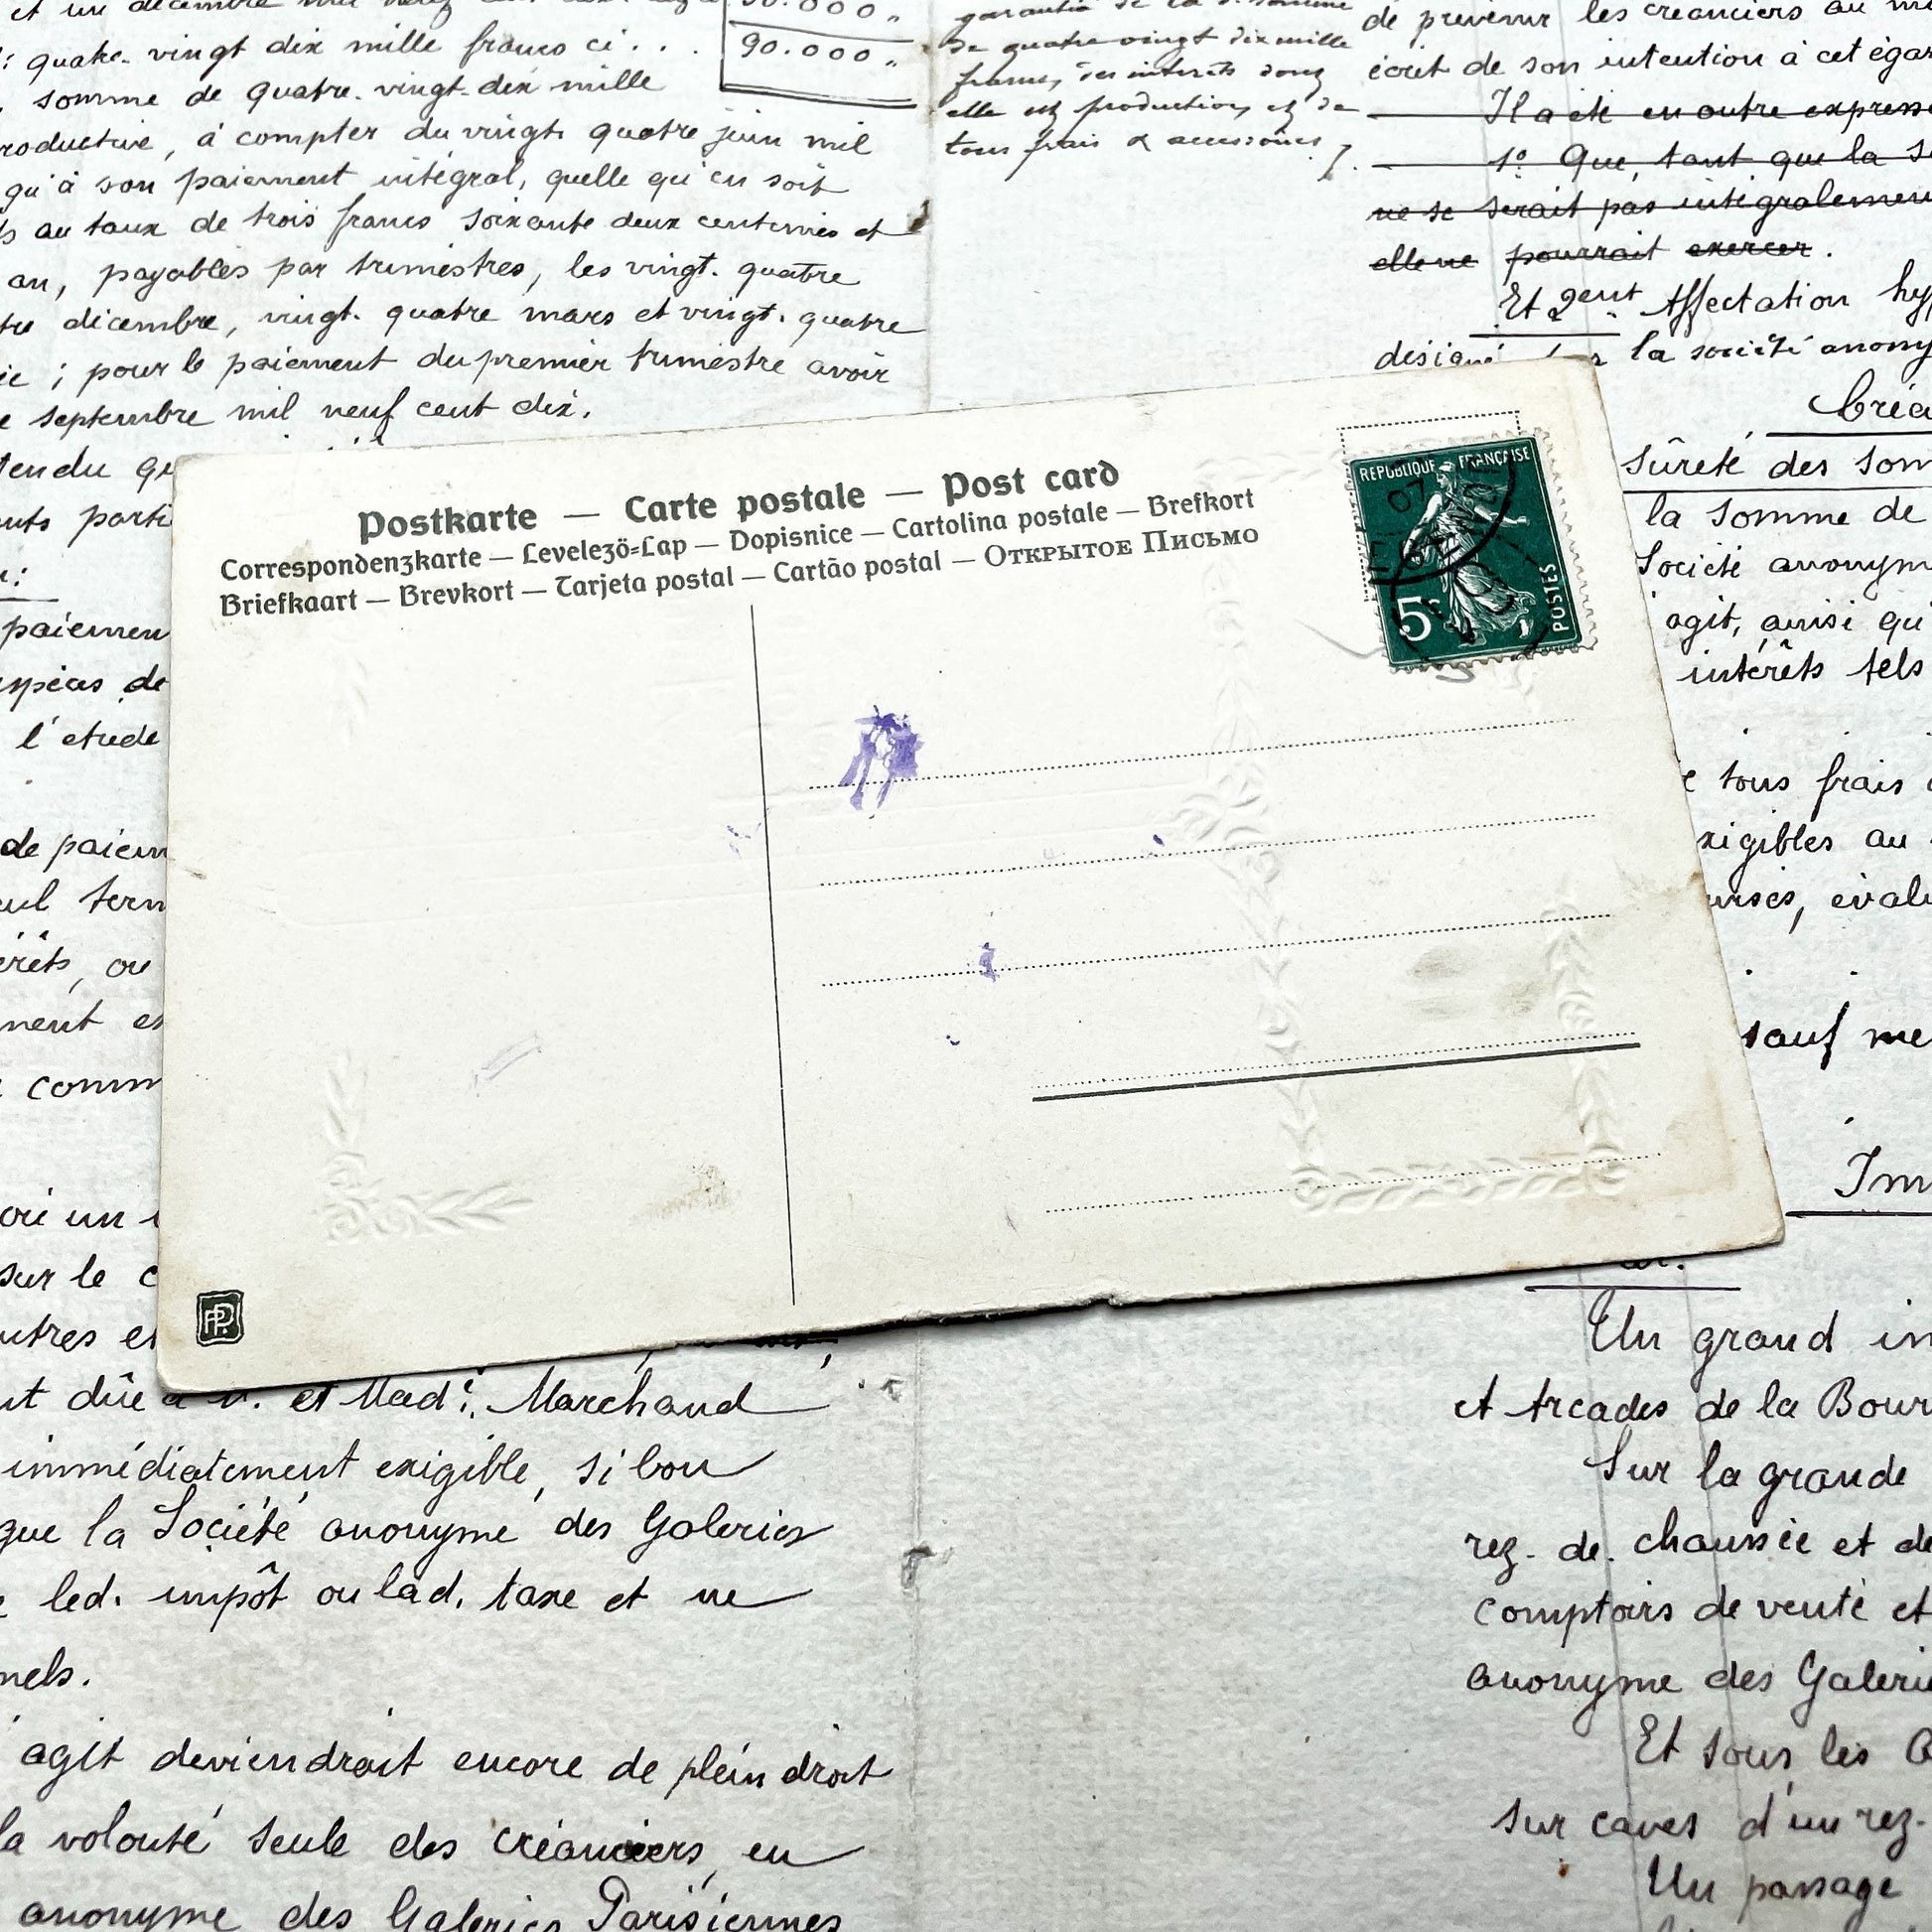 et un décembre mil
90.000 „
: quatre-vingt dix mille francs ci . . .
90.000 „
somme de quatre-vingt-dix mille
productive, à compter du vingt quatre juin mil
qu'à son paiement intégral, quelle qu'en soit
au taux de trois francs soixante deux centimes et
an, payables par trimestres, les vingt-quatre
décembre, vingt-quatre mars et vingt-quatre
; pour le paiement du premier trimestre avoir
septembre mil neuf cent dix.
garantie de la
de quatre vingt dix mille
francs, des intérêts dont
elle est productive, et de
tous frais & accessoires
de prévenir les créanciers au
écrit de son intention à cet égar
Il a été en outre express
1º Que, tant que la
ne se serait pas intégralement
elle ne pourrait exercer.
Et 2ent Affectation hyp
la société anony
Créa
sûreté des som
la somme de
Société anonym
agit, ainsi qu
intérêts tels
tous frais
exigibles au
éval
sauf me
Im
Postkarte — Carte postale — Post card
Correspondenzkarte — Levelezö-Lap — Dopisnice — Cartolina postale — Brefkort
Briefkaart — Brevkort — Tarjeta postal — Cartão postal — Открытое Письмо
REPUBLIQUE FRANÇAISE
5c
POSTES
tendu
parti
paiemen
espèces de
l'étude
de paiem
seul term
ou
comm
un
sur le
autres et
dûe à et Made. Marchand
immédiatement exigible, si bon
que la Société anonyme des Galeries
led. impôt ou lad. taxe et ne
agit deviendrait encore de plein droit
la volonté seule des créanciers, en
anonyme des Galeries Parisiennes
Un grand im
et Arcades de la Bour
Sur la grande
rez-de-chaussée et de
comptoirs de vente et
anonyme des Galerie
Et sous les
sur caves d'un rez-
Un passage